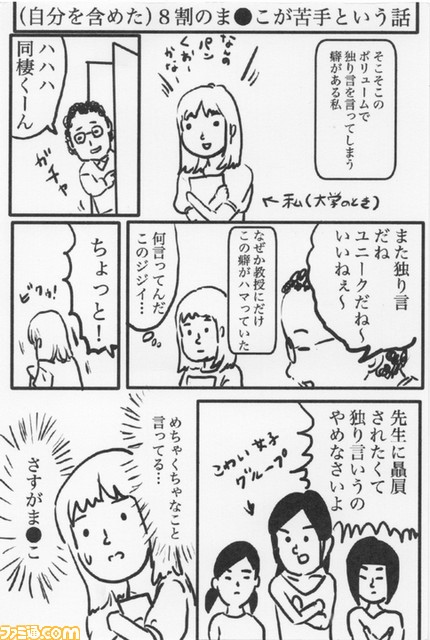 (自分を含めた)8割のま●こが苦手という話
そこそこの
ボリュームで
独り言を言ってしまう
癖がある私
なんの
パン
くお〜
かな
←私(大学のとき)
ハハハ
同棲くーん
ガチャ
また独り言
だね
ユニークだね〜
いいねぇ〜
なぜか教授にだけ
この癖がハマっていた
何言ってんだ
このジジイ…
ちょっと!
ビクッ!
先生に贔屓
されたくて
独り言いうの
やめなさいよ
こわい女子
グループ
めちゃくちゃなこと
言ってる…
さすがま●こ
ファミ通.com